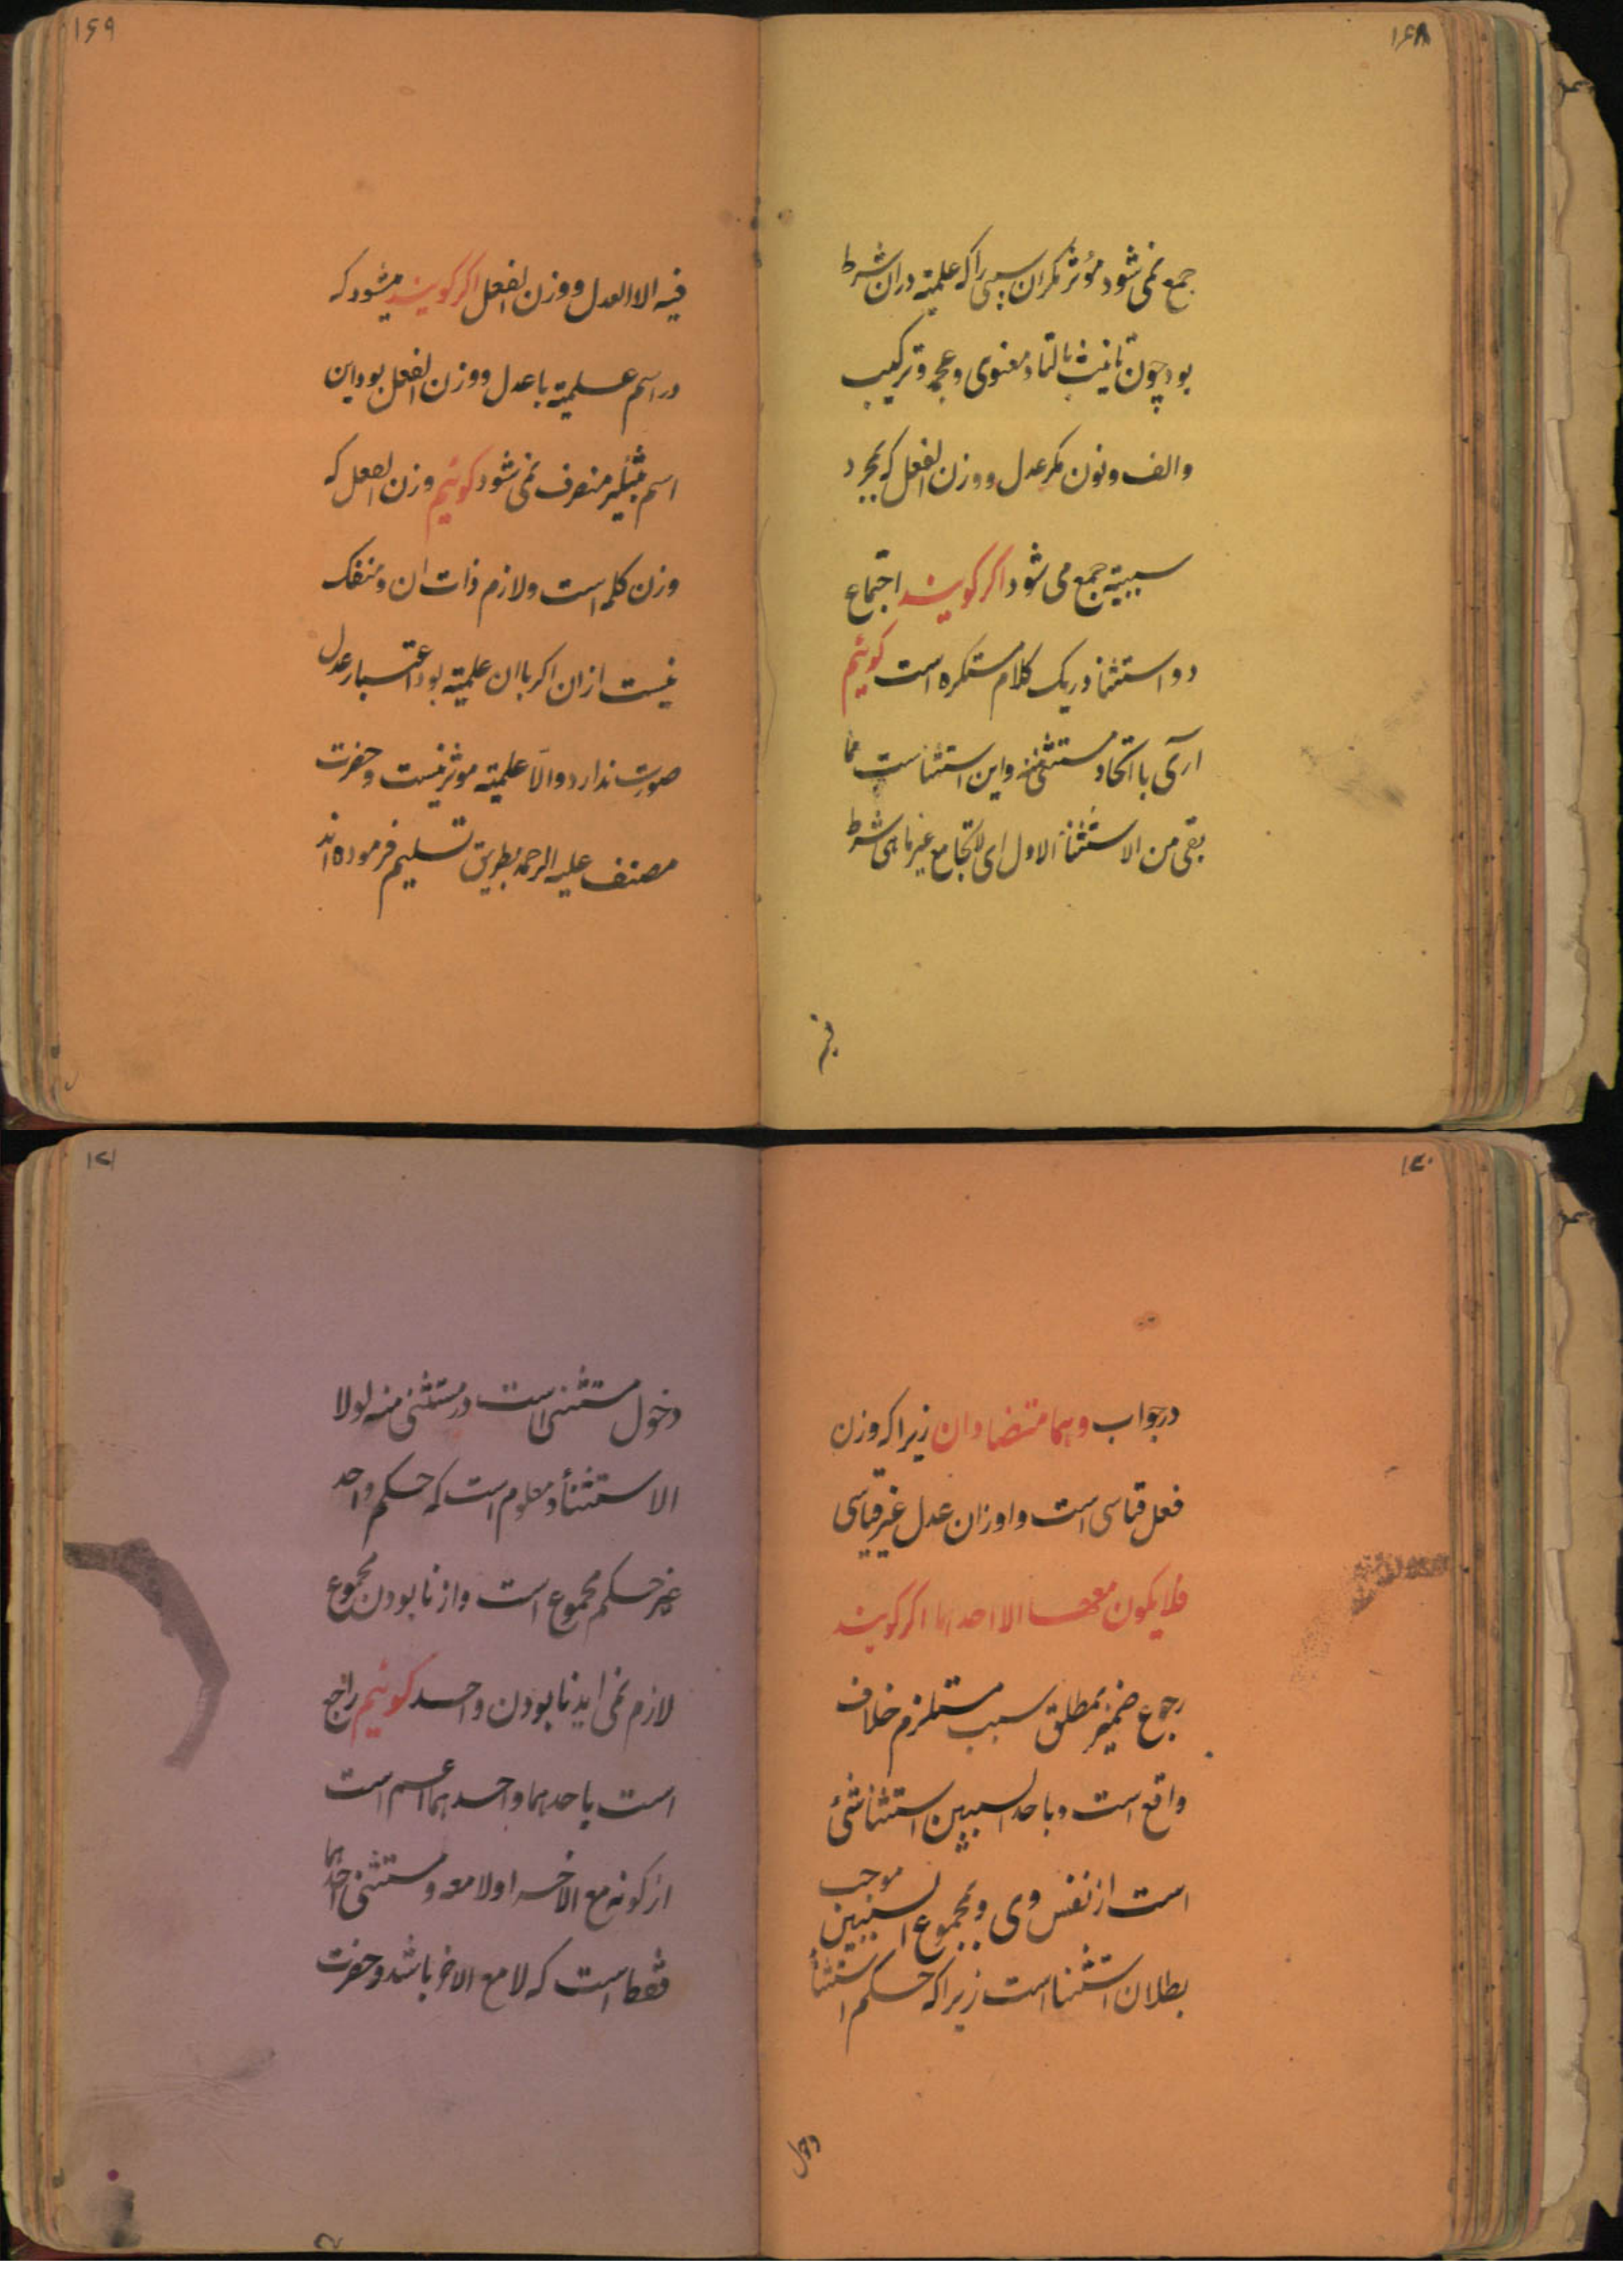 ۱۶۸
جمع نمی شود مؤثر مکران سببی راکه علمیته دران شرط
بود چون تانیث بالتاء و معنوی و عجمه و ترکیب
والف ونون مکر عدل ووزن الفعل که بمجرد
سببیته جمع می شود اکر کویند اجتماع
دو استثنا در یک کلام مستکره است کوئیم
آری با اتحاد مستثنی منه واین استثناست مما
بقی من الاستثناء الاول ای لاتجامع غیر ماهی شرط
فیه
۱۶۹
فیه الا العدل ووزن الفعل اکر کویند میشود که
در اسم علمیته با عدل ووزن الفعل بود این
اسم بتنکیر منصرف نمی شود کوئیم وزن الفعل که
وزن کلمه است ولازم ذات ان ومنفک
نیست ازان اکر باان علمیته بود اعتبار عدل
صورت ندارد والّا علمیته موثر نیست وحضرت
مصنف علیه الرحمه بطریق تسلیم فرموده اند
۱۷۰
درجواب وهما متضادان زیراکه وزن
فعل قیاسی است واوزان عدل غیر قیاسی
فلایکون معها الا احدهما اکر کویند
رجوع ضمیر بمطلق سبب مستلزم خلاف
واقع است وباحد السببین استثنا شئ
است از نفس وی وبمجموع السببین موجب
بطلان استثنا است زیراکه حکم استثنا
دخول
۱۷۱
دخول مستثنی است در مستثنی منه لولا
الاستثناء ومعلوم است که حکم واحد
غیر حکم مجموع است واز نابودن مجموع
لازم نمی اید نابودن واحد کوئیم راجع
است باحدهما واحدهما اعم است
از کونه مع الاخر اولا معه ومستثنی احدهما
فقط است که لا مع الاخر باشد وحضرت